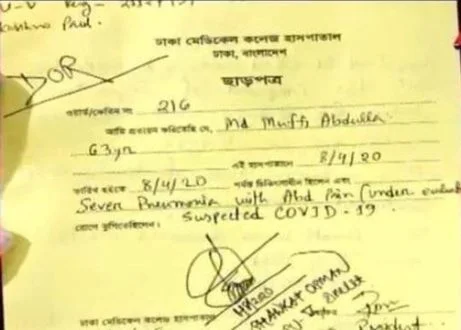 ঢাকা মেডিকেল কলেজ হাসপাতাল
ঢাকা, বাংলাদেশ
DOR
ছাড়পত্র
ওয়ার্ড/কেবিন নং 216
আমি প্রত্যয়ন করিতেছি যে, Md Mufti Abdulla
63yr
এই হাসপাতালে 8/4/20
তারিখ হইতে 8/4/20 পর্যন্ত চিকিৎসাধীন ছিলেন এবং
Seven Pneumonia with Abd Pain (under
suspected COVID-19
রোগে ভুগিতেছিলেন।
SHAIKAT OSMAN
ঢাকা মেডিকেল কলেজ হাসপাতাল